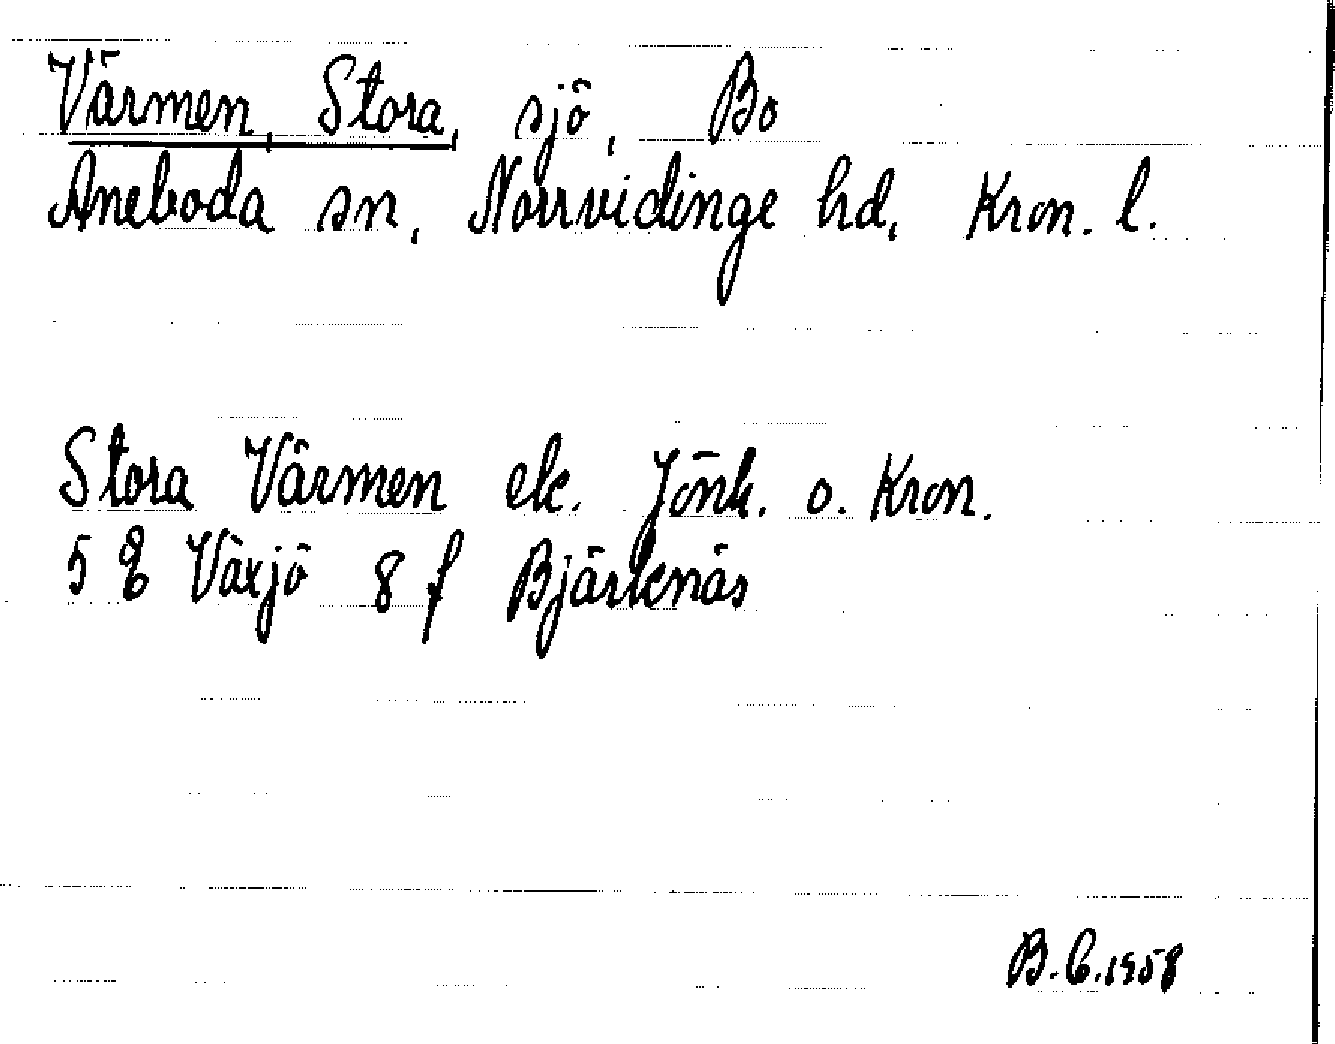 Värmen, Stora, sjö, Bo
Aneboda sn, Norrvidinge hd, Kron. l.
Stora Värmen ek. Jönk. o. Kron.
5 E Växjö 8 f Bjärkenäs
B.C.1958